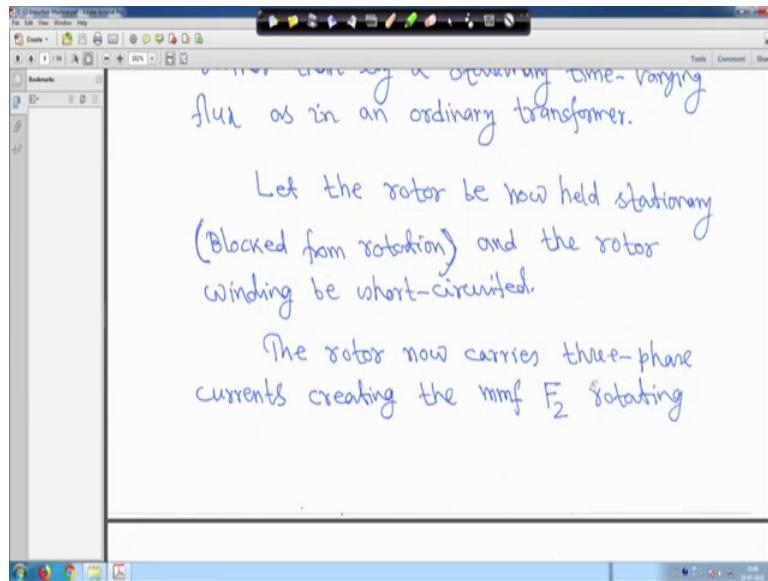 File Edit View Window Help
Create
Tools Comment
Bookmarks
by a stationary time-varying
flux as in an ordinary transformer.
Let the rotor be now held stationary
(Blocked from rotation) and the rotor
winding be short-circuited.
The rotor now carries three-phase
currents creating the mmf F2 rotating